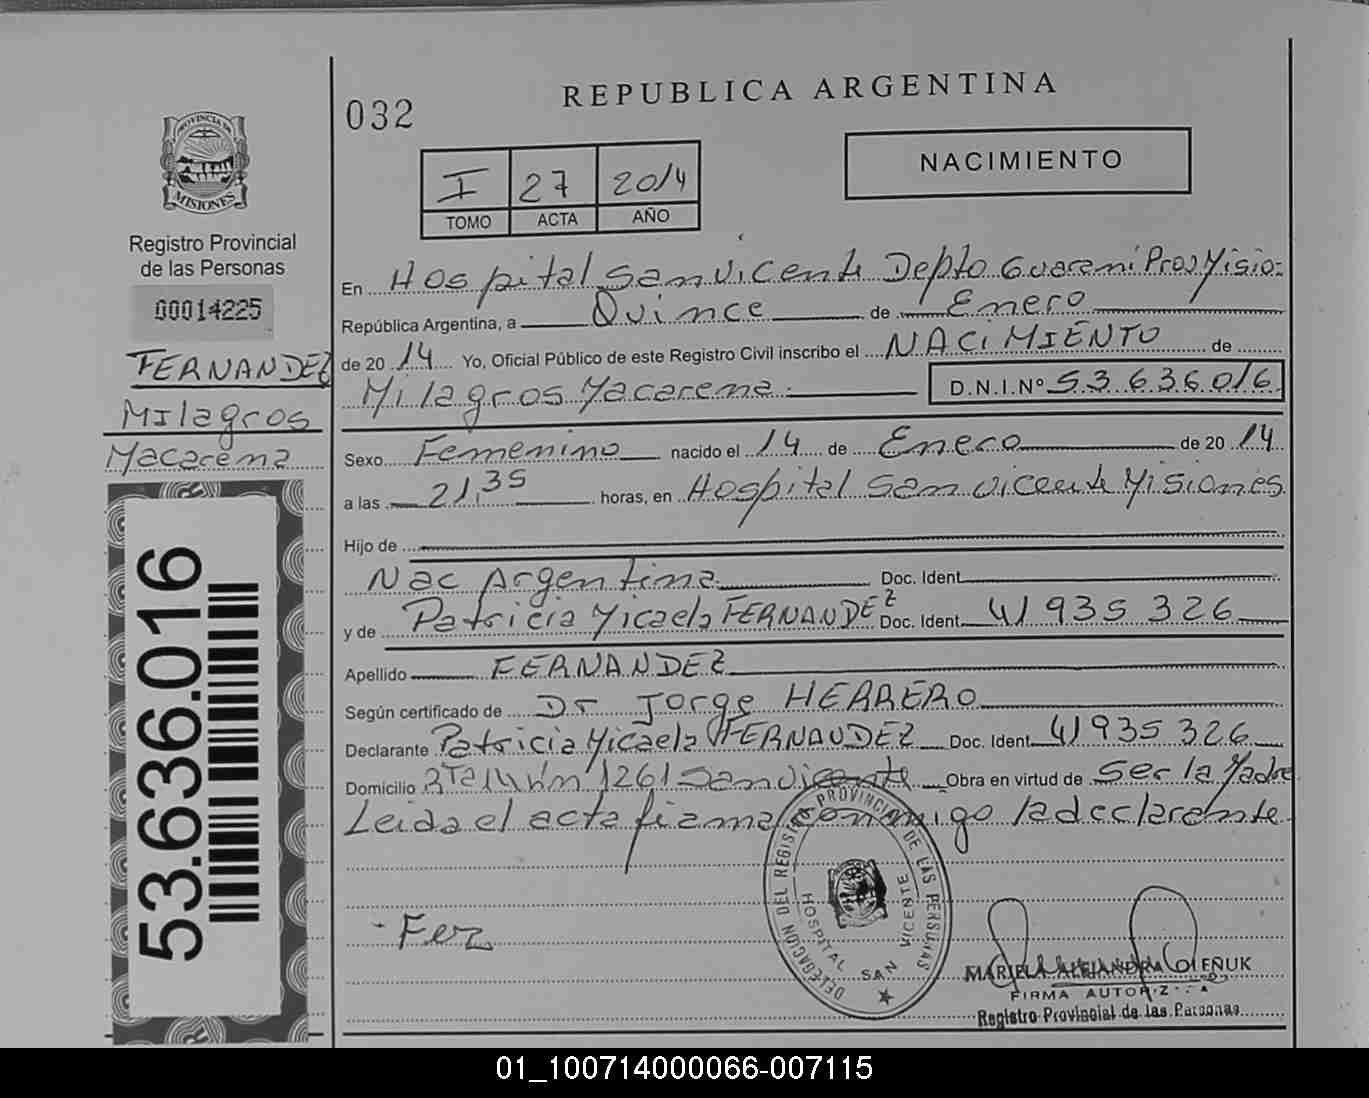 032
REPUBLICA ARGENTINA
NACIMIENTO
I 27 2014
TOMO ACTA AÑO
PROVINCIA DE
MISIONES
Registro Provincial
de las Personas
00014225
FERNANDEZ
Milagros
Macarena
53.636.016
En Hospital San Vicente Depto Guarani Prov Misio=
República Argentina, a Quince de Enero
de 20 14 Yo, Oficial Público de este Registro Civil inscribo el NACIMIENTO de
Milagros Macarena D.N.I.Nº 53.636.016
Sexo Femenino nacido el 14 de Enero de 20 14
a las 21,35 horas, en Hospital San Vicente Misiones
Hijo de
Nac Argentina Doc. Ident.
y de Patricia Micaela FERNANDEZ Doc. Ident. 41 935 326
Apellido FERNANDEZ
Según certificado de Dr Jorge HERRERO
Declarante Patricia Micaela FERNANDEZ Doc. Ident. 41 935 326
Domicilio 1261 San Vicente Obra en virtud de Ser la Madre
Leida el acta firma conmigo la declarante
DELEGACION DEL REGISTRO PROVINCIAL DE LAS PERSONAS
HOSPITAL SAN VICENTE
Fer
MARIELA ALEJANDRA OLEÑUK
FIRMA AUTORIZ
Registro Provincial de las Personas
01_100714000066-007115